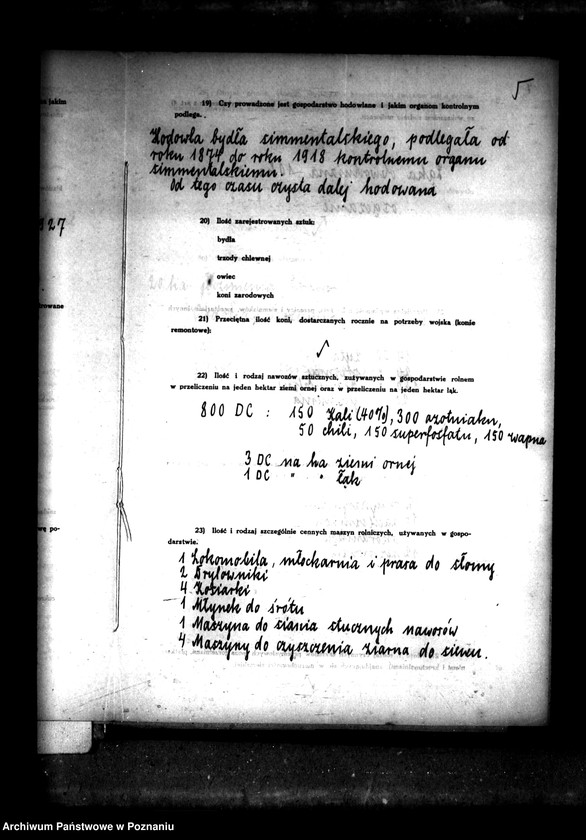 5
19) Czy prowadzone jest gospodarstwo hodowlane i jakim organom kontrolnym
podlega.
Hodowla bydła simmentalskiego, podlegała od
roku 1874 do roku 1918 kontrolnemu organu
simmentalskiemu.
Od tego czasu czysta dalej hodowana
20) Ilość zarejestrowanych sztuk:
bydła
trzody chlewnej
owiec
koni zarodowych
21) Przeciętna ilość koni, dostarczanych rocznie na potrzeby wojska (konie
remontowe):
22) Ilość i rodzaj nawozów sztucznych, zużywanych w gospodarstwie rolnem
w przeliczeniu na jeden hektar ziemi ornej oraz w przeliczeniu na jeden hektar łąk.
800 DC : 150 Kali (40%), 300 azotniaku,
50 chili, 150 superfosfatu, 150 wapna
3 DC na ha ziemi ornej
1 DC " " łąk
23) Ilość i rodzaj szczególnie cennych maszyn rolniczych, używanych w gospo-
darstwie.
1 Lokomobila, młockarnia i prasa do słomy
2 Drylowniki
4 Kosiarki
1 Młynek do śrótu
1 Maszyna do siania stucznych nawosów
4 Maszyny do czyszczenia ziarna do siewu.
jakim
927
rowane
po-
Archiwum Państwowe w Poznaniu